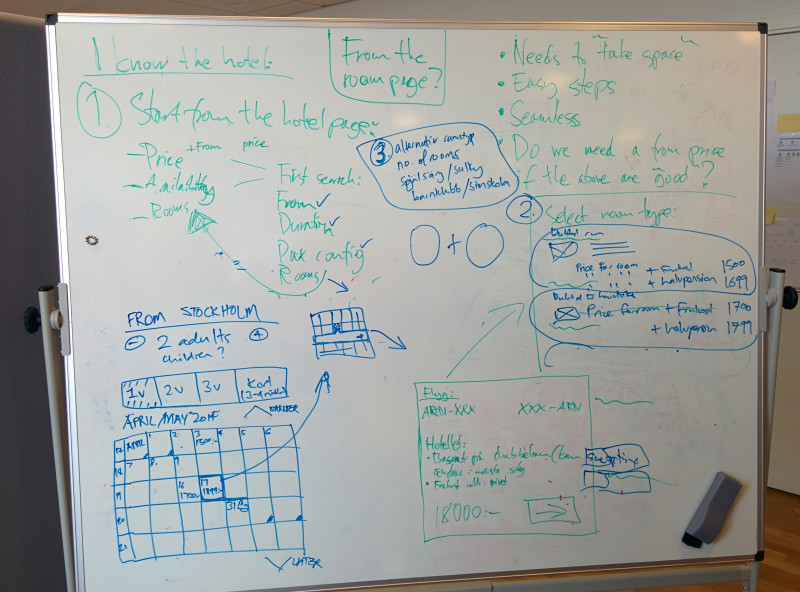 I know the hotel:
From the
room page?
• Needs to "take space"
• Easy steps
• Seamless
• Do we need a from price
if the above are "good"?
1. Start from the hotel page:
– Price + From price
– Availability
– Rooms
First search:
From ✓
Duration ✓
Pax config ✓
Rooms
3. alternativ rumstyp
no. of rooms
barnklubb/simskola
+
2. Select room type:
Dubbel rum
Price for room + Frukost 1500
" " " + halvpension 1699
Price for room + Frukost 1700
+ halvpension 1799
FROM STOCKHOLM
− 2 adults +
children?
1v 2v 3v Kort
EARLIER
APRIL/MAY 2015
APRIL 1 2 3 4 5 6
1500:-
18 7 8 9
19 16 17
1700:- 1899:-
20 31
21
LATER
Flyg:
ARN-XXX XXX-ARN
Hotellet:
18000:-